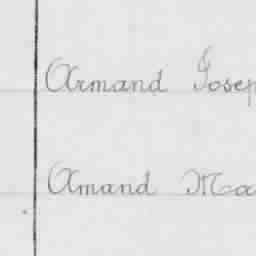 Armand Josep
Amand Ma